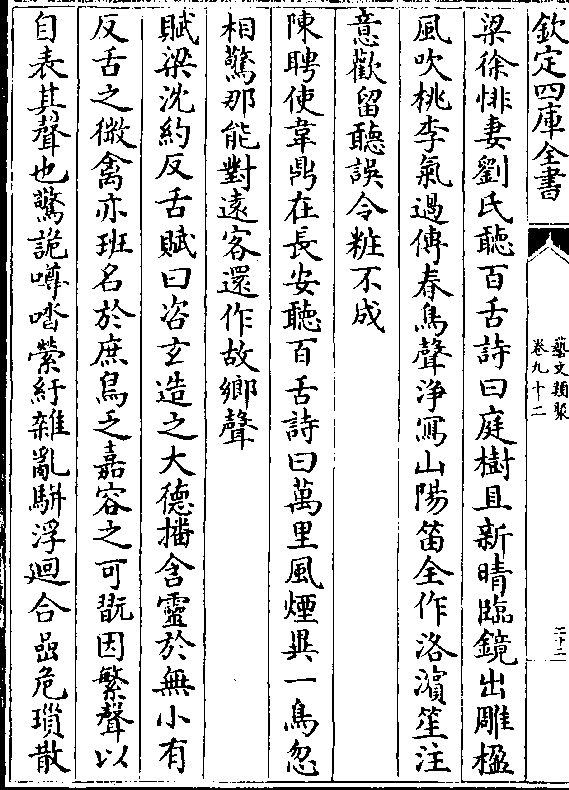 欽定四庫全書
藝文類聚
卷九十二
二十二
梁徐悱妻劉氏聽百舌詩曰庭樹且新晴臨鏡出雕楹
風吹桃李氣過傳春鳥聲浄寫山陽笛全作洛濱笙注
意歡留聽誤令粧不成
陳聘使韋鼎在長安聽百舌詩曰萬里風煙異一鳥忽
相驚那能對遠客還作故鄉聲
賦梁沈約反舌賦曰咨玄造之大德播含靈於無小有
反舌之微禽亦班名於庶鳥乏嘉容之可翫因繁聲以
自表其聲也驚詭噂㗳縈紆雜亂駢浮廻合嵒危瑣散